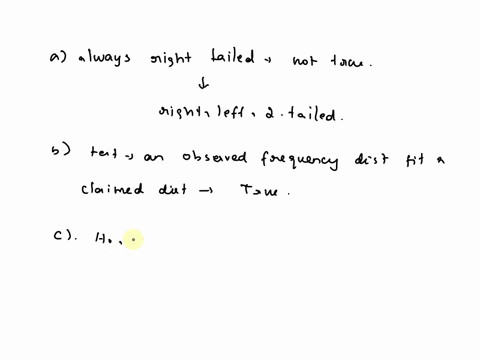 a) always right tailed → not true.
↓
right, left, 2 tailed.
b) test → an observed frequency dist fit a
claimed dist → True.
c). H₀,